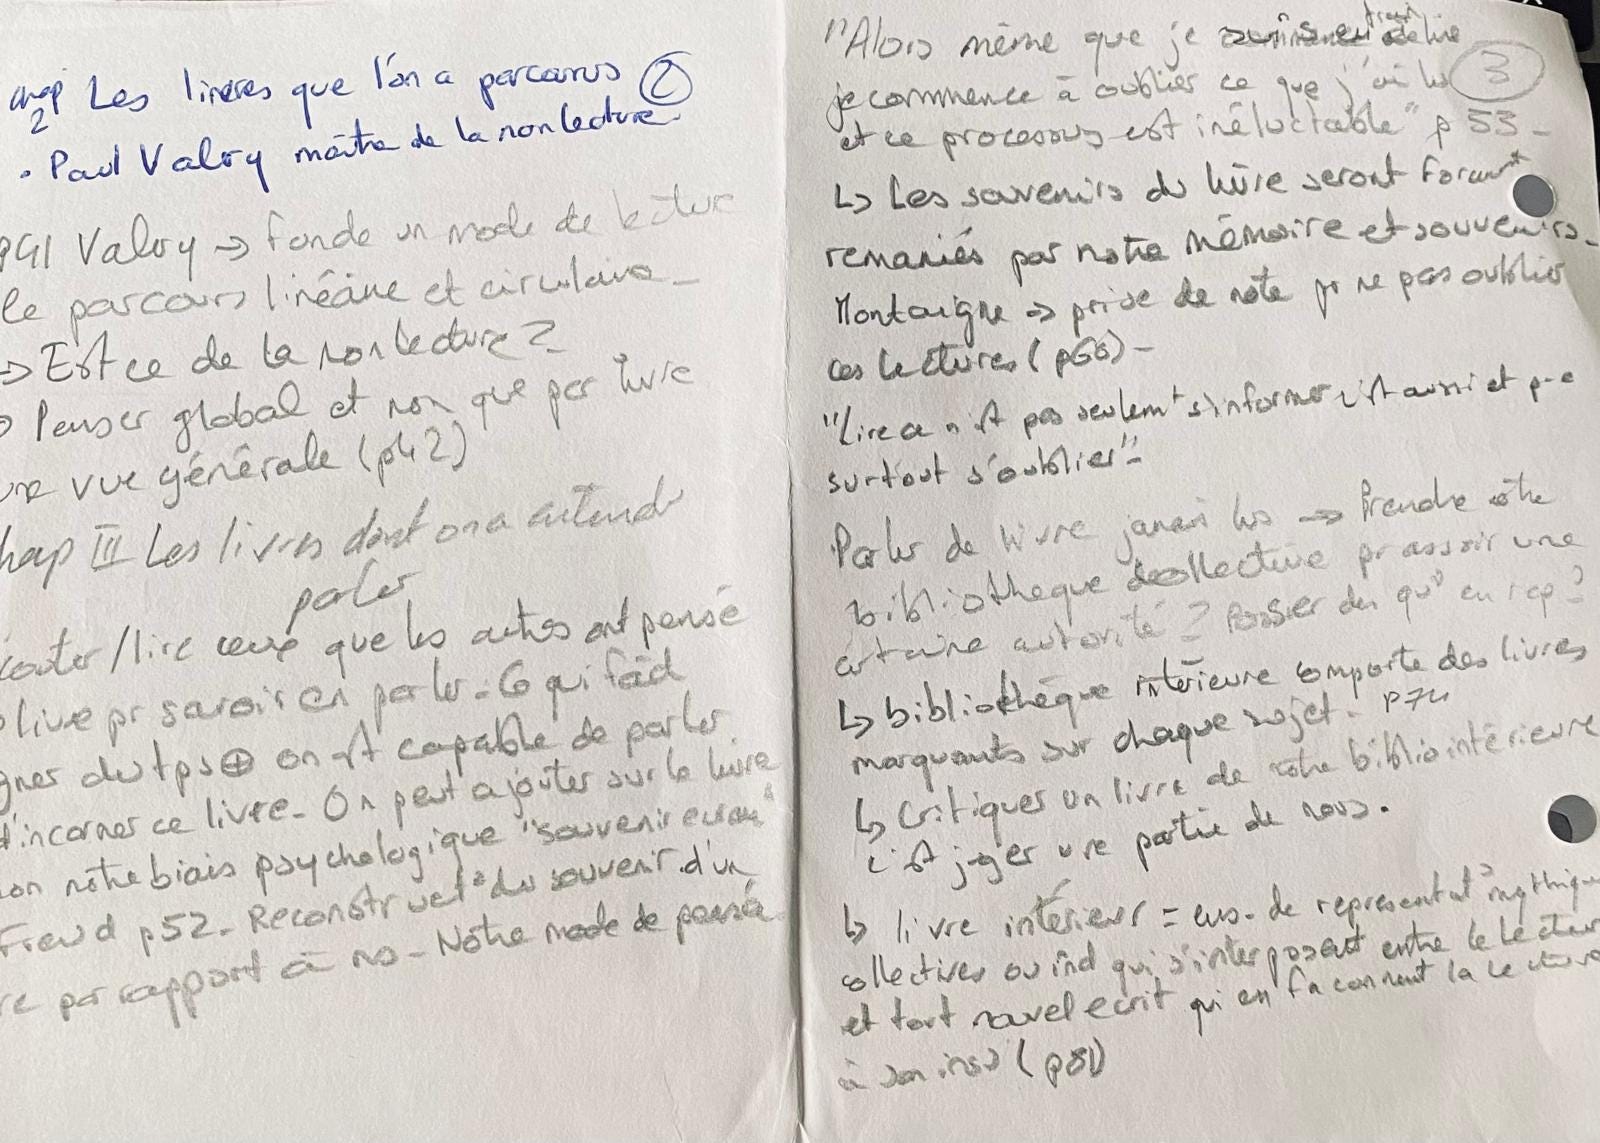 chap Les livres que l'on a parcourus ②
2
. Paul Valéry maître de la non lecture.
p41 Valéry → fonde un mode de lecture
le parcours linéaire et circulaire _
→ Est ce de la non lecture ?
Penser global et non que par livre
vue générale (p42)
Chap III Les livres dont on a entendu
parler
couter / lire ceux que les autres ont pensé
livre pr savoir en parler. Ce qui fait
gner du tps ⊕ on est capable de parler
d'incarner ce livre. On peut ajouter sur le livre
on notre biais psychologique "souvenir écran"
Freud p52 - Reconstruct° du souvenir d'un
re par rapport à ns - Notre mode de pensée
"Alors même que je suis en train de lire ③
je commence à oublier ce que j'ai lu
et ce processus est inéluctable" p 53 _
↳ Les souvenirs du livre seront
remaniés par notre mémoire et souvenirs _
Montaigne → prise de note pr ne pas oublier
ces lectures (p66) _
"Lire ce n'est pas seulemt s'informer c'est aussi et p-e
surtout s'oublier" _
Parler de livre jamais lus → Prendre notre
bibliothèque collective pr assoir une
certaine autorité ? en rep ?
↳ bibliothèque intérieure comporte des livres
marquants sur chaque sujet. p74
↳ Critiquer un livre de notre biblio intérieure
c'est juger une partie de nous.
↳ livre intérieur = ens. de représentat° mythiques
collectives ou ind qui s'interposent entre le lecteur
et tout nouvel ecrit qui en façonnent la lecture
à son insu (p81)